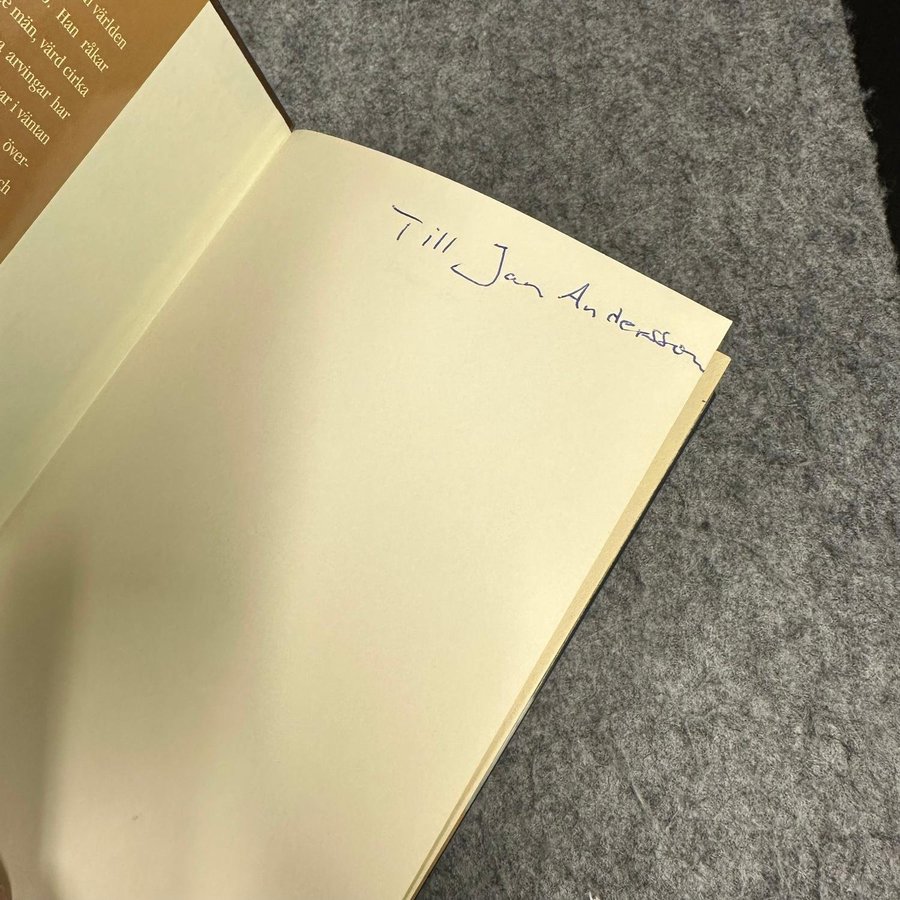 världen
Han råkar
män, värd cirka
arvingar har
i väntan
över-
Till Jan Andersson